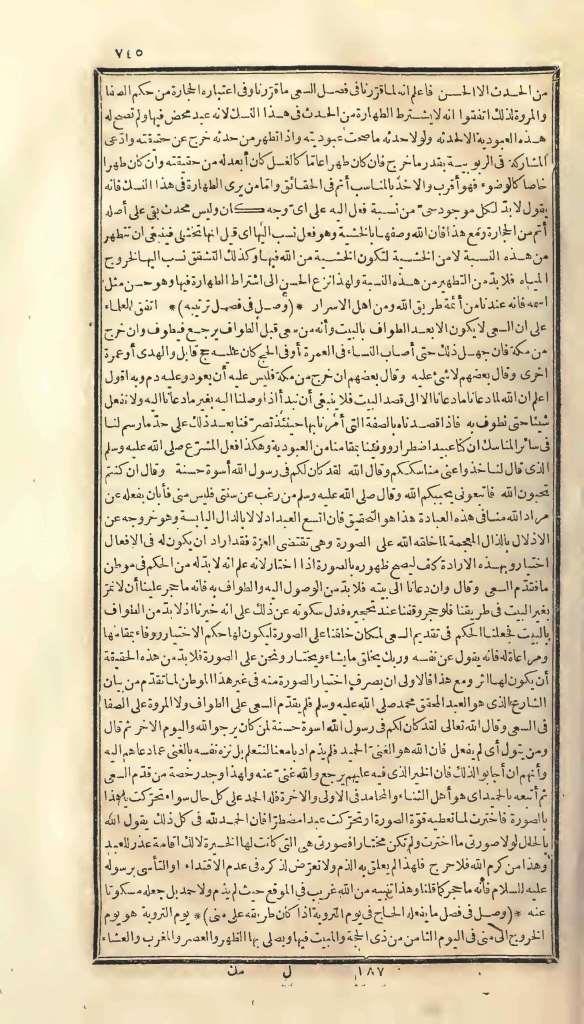 ٧٤٥
من الحدث الا الحسن فاعلم انه لما قررنا فى فصل السعى ما قررناه فى اعتباره الحجارة من حكم الصفا
والمروة لذلك اتفقوا انه لا يشترط الطهارة من الحدث فى هذا النسك لانه عبد محض فيها ولم تصح له
هذه العبودية الا لحدثه ولولا حدثه ما صحت عبوديته واذا تطهر من حدثه خرج عن حقيقته وادعى
المشاركة فى الربوبية بقدر ما خرج فان كان طهرا عاما كالغسل كان أبعد له من حقيقته وان كان طهرا
خاصا كالوضوء فهو أقرب والاخذ بالمناسب أتم فى الحقائق واما من يرى الطهارة فى هذا النسك فانه
يقول لا بد لكل موجود حى من نسبة فعل اليه على اى وجه كان وليس محدث بقى على أصله
أتم من الحجارة ومع هذا فان الله وصفها بالخشية وهو فعل نسب اليها اى قيل انها تخشى فينبغى ان تتطهر
من هذه النسبة لا من الخشية لتكون الخشية من الله فيها وكذلك التشقق نسب اليها لخروج
المياه فلا بد من التطهير من هذه النسبة ولهذا نزع الحسن الى اشتراط الطهارة فيها وهو حسن مثل
اسمه فانه عندنا من أئمة طريق الله ومن اهل الاسرار * (وصل فى فصل ترتيبه) * اتفق العلماء
على ان السعى لا يكون الا بعد الطواف بالبيت وأنه من سعى قبل الطواف يرجع فيطوف وان خرج
من مكة فان جهل ذلك حتى أصاب النساء فى العمرة أو فى الحج كان عليه حج قابل والهدى أو عمرة
اخرى وقال بعضهم لا شئ عليه وقال بعضهم ان خرج من مكة فليس عليه أن يعود وعليه دم وبه اقول
اعلم ان الله لما دعانا ما دعانا الا الى قصد البيت فلا ينبغى أن نبدأ اذا وصلنا اليه بغير ما دعانا اليه ولا نفعل
شيئا حتى نطوف به فاذا قصدناه بالصفة التى أمرنا بها حينئذ تصرفنا بعد ذلك على حد ما رسم لنا
فى سائر المناسك ان كنا عبيد اضطرار ووفينا بمقامنا من العبودية وهكذا فعل المشرع صلى الله عليه وسلم
الذى قال لنا خذوا عنى مناسككم وقال الله لقد كان لكم فى رسول الله أسوة حسنة وقال ان كنتم
تحبون الله فاتبعونى يحببكم الله وقال صلى الله عليه وسلم من رغب عن سنتى فليس منى فأبان بفعله عن
مراد الله منا فى هذه العبادة هذا هو التحقيق فان اتسع العبد ادلالا بالدال اليابسة وهو خروجه عن
الاذلال بالذال المعجمة لما خلقه الله على الصورة وهى تقتضى العزة فقد اراد ان يكون له فى الافعال
اختيار وبهذه الارادة كلف ليصح ظهوره بالصورة اذا اختار لانه علم انه لا بد له من الحكم فى موطن
ما فقدم السعى وقال وان دعانا الى بيته فلا بد من الوصول اليه والطواف به فانه ما حجر علينا أن لا نمر
بغير البيت فى طريقنا فلو حجر وقفنا عند تحجيره فدل سكوته عن ذلك على انه خيرنا اذ لا بد من الطواف
بالبيت فجعلنا الحكم فى تقديم السعى لمكان خلقنا على الصورة ليكون لها حكم الاختيار ووفاء بمقامها
ومراعاة له فانه يقول عن نفسه وربك يخلق ما يشاء ويختار ونحن على الصورة فلا بد من هذه الحقيقة
أن يكون لها اثر ومع هذا فالاولى ان يصرف اختيار الصورة منه فى غير هذا الموطن لما تقدم من بيان
الشارع الذى هو العبد المحقق محمد صلى الله عليه وسلم فلم يقدم السعى على الطواف ولا المروة على الصفا
فى السعى وقال الله تعالى لقد كان لكم فى رسول الله اسوة حسنة لمن كان يرجو الله واليوم الاخر ثم قال
ومن يتول أى لم يفعل فان الله هو الغنى الحميد فلم يذم ادبا معنا لنتعلم بل نزه نفسه بالغنى عما دعاهم اليه
وأنهم ان أجابوا لذلك فان الخير الذى فيه عليهم يرجع والله غنى عنه ولهذا وجد رخصة من قدم السعى
ثم أتبعه بالحميد اى هو أهل الثناء والمحامد فى الاولى والاخرة فله الحمد على كل حال سواء تحركت بهذا
بالصورة فاخترت لما تعطيه قوة الصورة او تحركت عبدا مضطرا فان الحمد لله فى كل ذلك يقول الله
بالحال لولا صورتى ما اخترت ولم تكن مختارا فصورتى هى التى كانت لها الخيرة لا لك اقامة عذر للعبد
وهذا من كرم الله فلا حرج فلهذا لم يعلق به الذم ولا تعرض لذكره فى عدم الاقتداء او التأسى برسوله
عليه السلام فأنه ما حجر كما قلنا وهذا تنبيه من الله غريب فى الموقع حيث لم يذم ولا حمد بل جعله مسكوتا
عنه * (وصل فى فصل ما يفعله الحاج فى يوم التروية اذا كان طريقه على منى) * يوم التروية هو يوم
الخروج الى منى فى اليوم الثامن من ذى الحجة والمبيت فيها ويصلى بها الظهر والعصر والمغرب والعشاء
١٨٧ ل مك